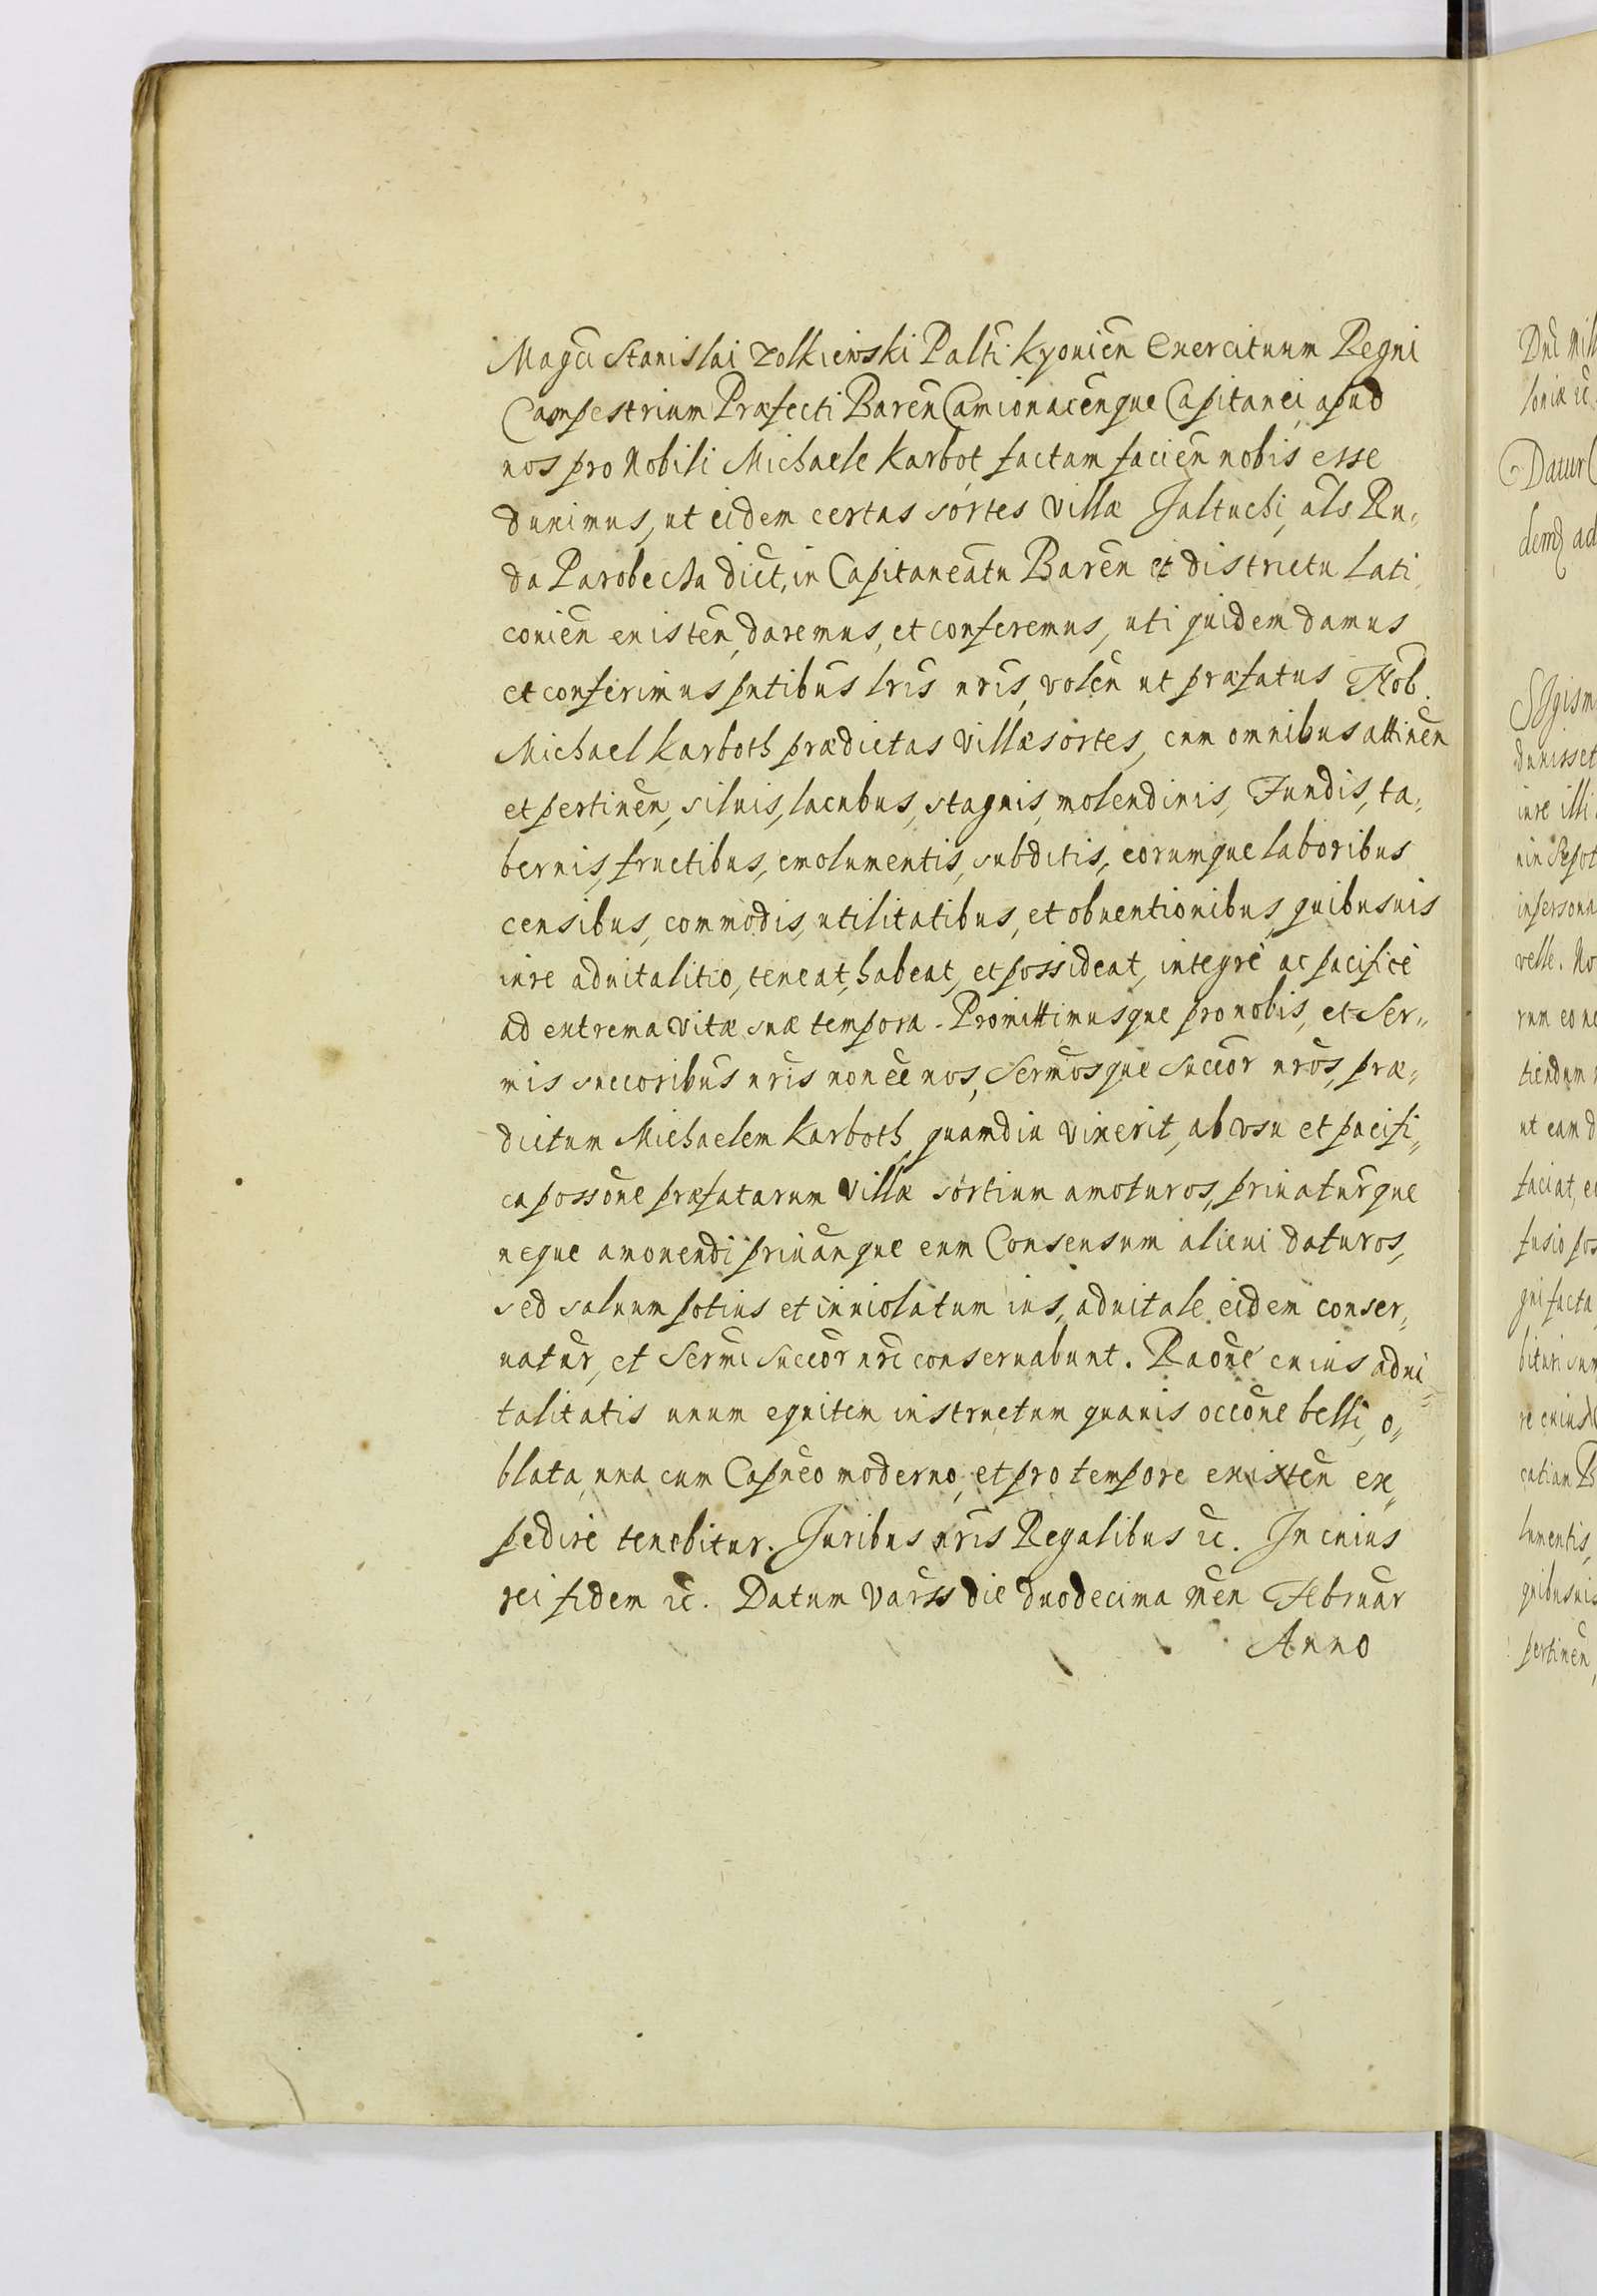 Magci Stanislai Zolkiewski Palti Kyouien Exercituum Regni
Campestrium Præfecti Baren Camionacenque Capitanei, apud
nos pro Nobili Michaele Karbot, factam facien nobis esse
duximus, ut eidem certas sortes Villæ Jaltuchi, als Ru„
da Parobecka dict, in Capitaneatu Baren et districtu Lati„
couien existen, daremus, et conferemus, uti quidem damus
et conferimus pntibus lris nris, volen ut præfatus Nob.
Michael Karboth prædictas Villæ sortes, cum omnibus attinen
et pertinen, siluis, lacubus, stagnis, molendinis, Fundis, ta„
bernis, fructibus, emolumentis, subditis, eorumque laboribus
censibus, commodis, utilitatibus, et obuentionibus, quibusuis
iure aduitalitio, teneat, habeat, et possideat, integrè ac pacificè
ad extrema vitæ suæ tempora. Promittimusque pro nobis, et Ser„
mis succoribus nris non ee nos, Sermosque Succor nros, præ„
dictum Michaelem Karboth, quamdiu vixerit, ab vsu et pacifi„
ca possone præfatarum Villæ sortium amoturos, priuaturque
neque amouendi priuanque eum Consensum alicui daturos,
sed saluum potius et inuiolatum ius, aduitale eidem conser„
uatur, et Sermi Succor nri conseruabunt. Raone cuius adui„
talitatis unum equitem instructum quauis occone belli, o„
blata, una cum Capneo moderno, et pro tempore existen ex„
pedire tenebitur. Juribus nris Regalibus &c. In cuius
rei fidem &c. Datum Varss die duodecima Men Februar
Anno
Dni Mill
loniæ &c
Datur
demq ad
Sigism
duxisset
iure illi
velle. No
rum eo
tiendum
ut eam d
faciat, e
fusio pos
qui facta
bituri sum
re cuius
lumentis,
quibusuis
pertinen,